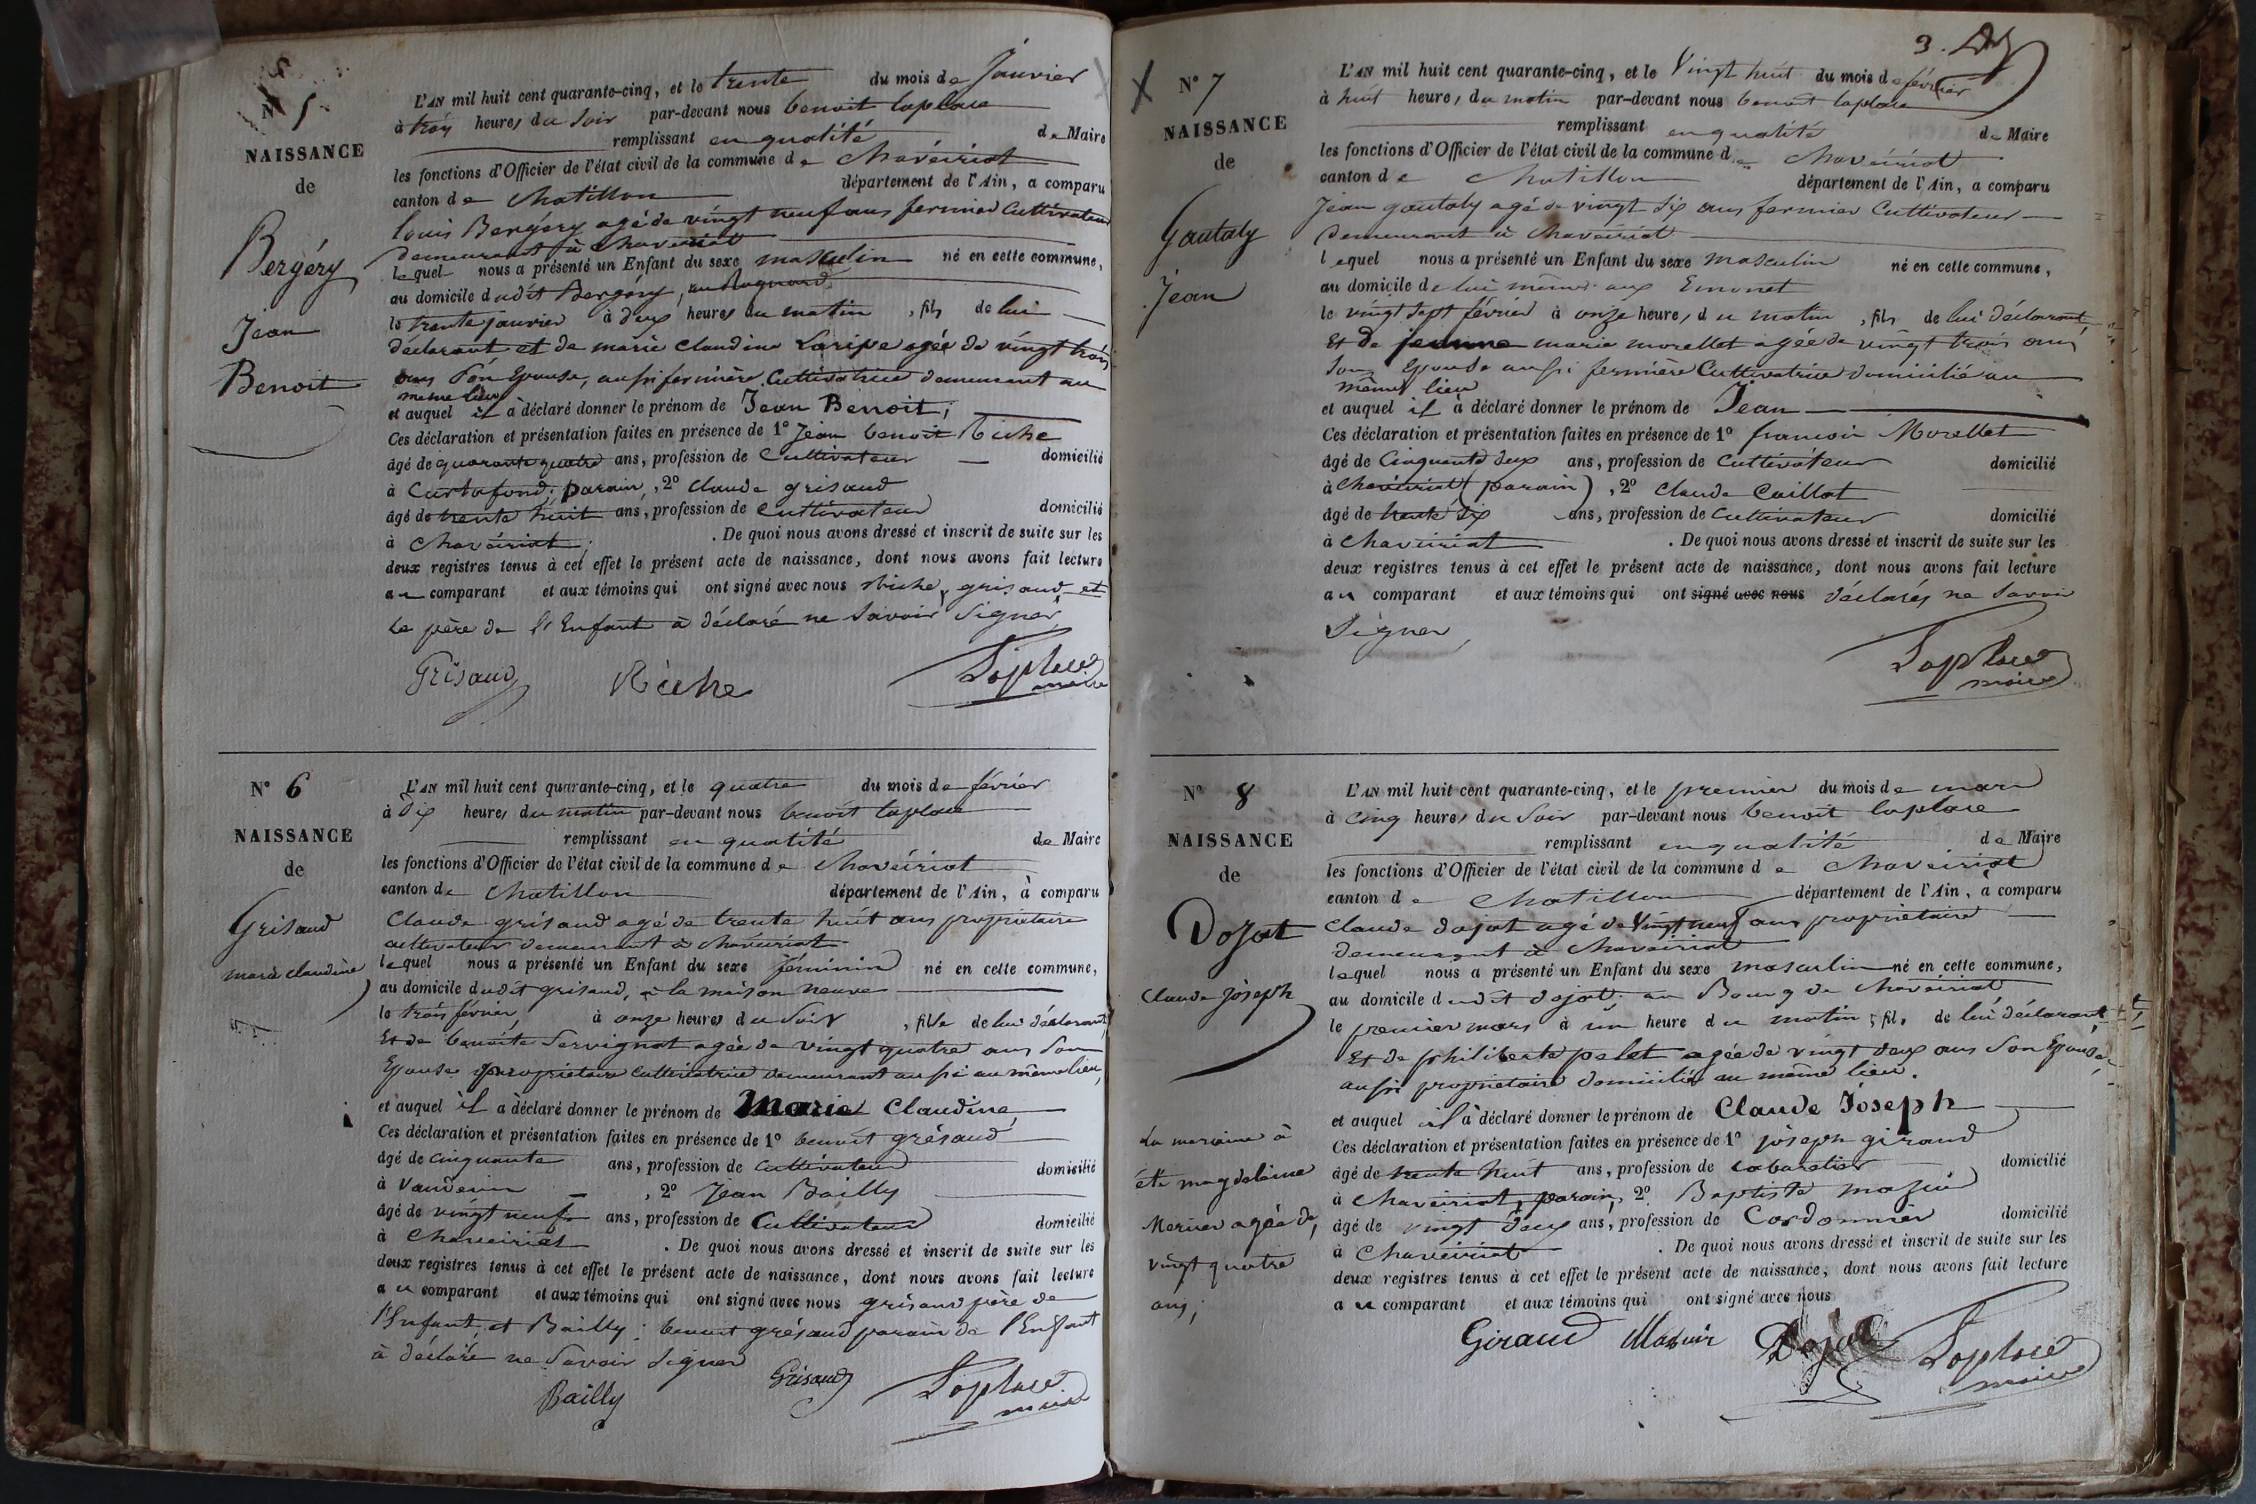 N° 5
NAISSANCE
de
Bergéry
Jean
Benoit
L'AN mil huit cent quarante-cinq, et le trente du mois de Janvier
à troy heures du soir par-devant nous benoit laplace
remplissant en qualité de Maire
les fonctions d'Officier de l'état civil de la commune de chaveiriat
canton de chatillon département de l'Ain, a comparu
louis Bergéry agé de vingt neuf ans fermier Cultivateur
demeurant à chaveiriat
lequel nous a présenté un Enfant du sexe masculin né en cette commune,
au domicile dudit Bergéry, au
le trente janvier à deux heures du matin, fils de lui
déclarant et de marie Claudine Laripe agée de vingt trois
ans son Epouse, aussi fermière Cultivatrice demeurant au
meme lieu
et auquel il a déclaré donner le prénom de Jean Benoit;
Ces déclaration et présentation faites en présence de 1° Jean benoit Riche
âgé de quarante quatre ans, profession de Cultivateur domicilié
à Curtafond; parain, 2° claude grisaud
âgé de trente huit ans, profession de cultivateur domicilié
à chaveiriat; . De quoi nous avons dressé et inscrit de suite sur les
deux registres tenus à cet effet le présent acte de naissance, dont nous avons fait lecture
au comparant et aux témoins qui ont signé avec nous Riche, grisaud et
le père de l'Enfant a déclaré ne savoir signer
Grisaud Riche Laplace
maire
N° 6
NAISSANCE
de
Grisaud
marie claudine
L'AN mil huit cent quarante-cinq, et le quatre du mois de février
à dix heures du matin par-devant nous benoit laplace
remplissant en qualité de Maire
les fonctions d'Officier de l'état civil de la commune de chaveiriat
canton de chatillon département de l'Ain, à comparu
Claude grisaud agé de trente huit ans propriétaire
cultivateur demeurant à chaveiriat
lequel nous a présenté un Enfant du sexe féminin né en cette commune,
au domicile dudit grisaud, à la maison neuve
le trois février à onze heures du soir, fille de lui déclarant
Et de benoite Servignat agée de vingt quatre ans son
Epouse propriétaire cultivatrice demeurant aussi au même lieu,
et auquel il a déclaré donner le prénom de Marie Claudine,
Ces déclaration et présentation faites en présence de 1° benoit grésaud
âgé de cinquante ans, profession de cultivateur domicilié
à Vandeins, 2° Jean Bailly
âgé de vingt neuf ans, profession de Cultivateur domicilié
à chaveiriat . De quoi nous avons dressé et inscrit de suite sur les
deux registres tenus à cet effet le présent acte de naissance, dont nous avons fait lecture
au comparant et aux témoins qui ont signé avec nous grisaud père de
l'Enfant et Bailly; benoit grésaud parain de l'Enfant
à déclaré ne Savoir signer
Bailly Grisaud Laplace
maire
3.
N° 7
NAISSANCE
de
Gautaly
Jean
L'AN mil huit cent quarante-cinq, et le Vingt huit du mois de février
à huit heures du matin par-devant nous benoit laplace
remplissant en qualité de Maire
les fonctions d'Officier de l'état civil de la commune de chaveiriat
canton de chatillon département de l'Ain, a comparu
Jean gautaly agé de vingt six ans fermier Cultivateur
demeurant à chaveiriat
lequel nous a présenté un Enfant du sexe masculin né en cette commune,
au domicile de lui même aux Emonet
le vingt sept février à onze heures du matin, fils de lui déclarant,
Et de jeanne marie morellet agée de vingt trois ans,
son Epouse aussi fermière Cultivatrice domicilié au
même lieu
et auquel il a déclaré donner le prénom de Jean
Ces déclaration et présentation faites en présence de 1° francois Morellet
âgé de Cinquante deux ans, profession de Cultivateur domicilié
à chaveiriat (parain), 2° Claude Caillat
âgé de trente six ans, profession de Cultivateur domicilié
à chaveiriat . De quoi nous avons dressé et inscrit de suite sur les
deux registres tenus à cet effet le présent acte de naissance, dont nous avons fait lecture
au comparant et aux témoins qui ont signé avec nous déclarés ne Savoir
Signer
Laplace
maire
N° 8
NAISSANCE
de
Dojat
Claude joseph
La maraine à
été magdelaine
Merier agée de
vingt quatre
ans;
L'AN mil huit cent quarante-cinq, et le premier du mois de mars
à cinq heures du soir par-devant nous benoit laplace
remplissant en qualité de Maire
les fonctions d'Officier de l'état civil de la commune de chaveiriat
canton de chatillon département de l'Ain, à comparu
claude dojat agé de vingt neuf ans propriétaire
demeurant à chaveiriat
lequel nous a présenté un Enfant du sexe masculin né en cette commune,
au domicile dudit dojat au Bourg de chaveiriat
le premier mars à un heure du matin, fils de lui déclarant
Et de philiberte pelet agée de vingt deux ans son Epouse,
aussi propriétaire domiciliée au même lieu.
et auquel il à déclaré donner le prénom de Claude Joseph
Ces déclaration et présentation faites en présence de 1° joseph giraud
âgé de trente huit ans, profession de cabaretier domicilié
à chaveiriat, parain, 2° Baptiste
âgé de vingt deux ans, profession de Cordonnier domicilié
à Chaveiriat . De quoi nous avons dressé et inscrit de suite sur les
deux registres tenus à cet effet le présent acte de naissance, dont nous avons fait lecture
au comparant et aux témoins qui ont signé avec nous
Giraud Dojat Laplace
maire